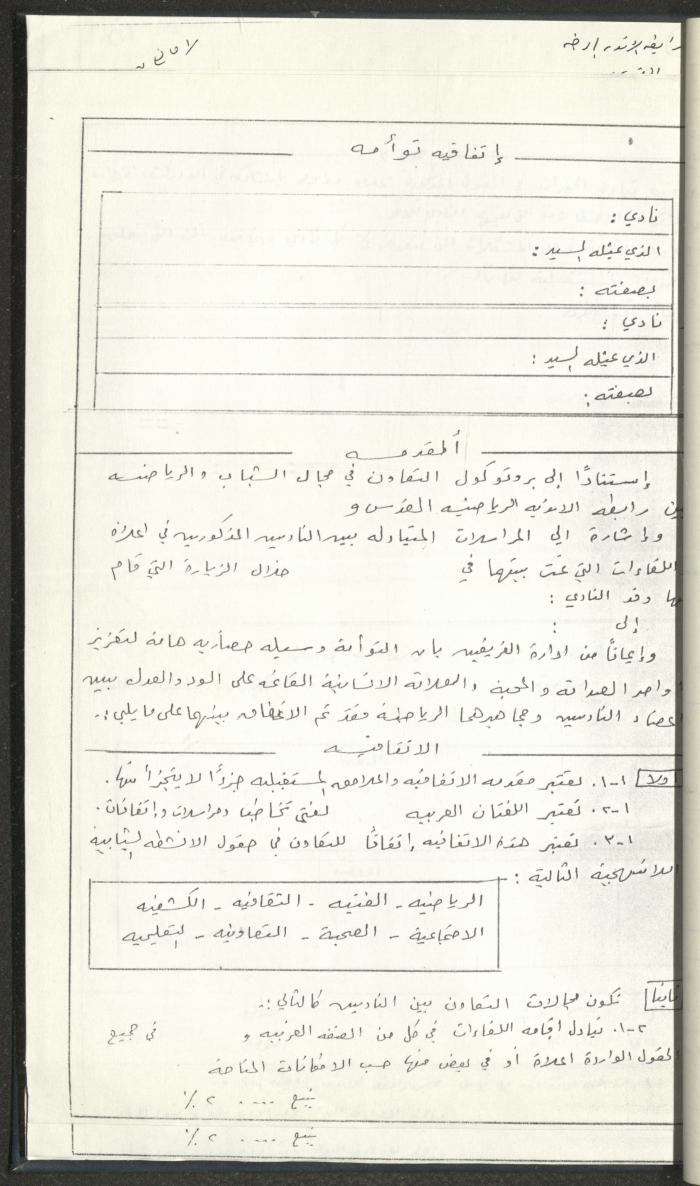 رابطة الاندية الرياضية
القدس
إتفاقيه توأمه
نادي :
الذي يمثله السيد :
بصفته :
نادي :
الذي يمثله السيد :
بصفته :
ألمقدمه
إستنادًا إلى بروتوكول التعاون في مجال الشباب والرياضه
بين رابطه الانديه الرياضيه القدس و
و إشارة الى المراسلات المتبادله بين الناديين المذكورين في اعلاه
اللقاءات التي تمت بينهما في خلال الزيارة التي قام
بها وفد النادي :
إلى :
وإيماناً من ادارة الفريقين بان التوأمة وسيله حضاريه هامة لتعزيز
أواصر الصداقة والمحبة والعلاقه الانسانية القائمه على الود والعدل بين
اعضاء الناديين وجماهيرهما الرياضية فقد تم الاتفاق بينهما على ما يلي :-
الاتفاقيه
اولا ١-١٠ تعتبر مقدمه الاتفاقيه والملاحق المستقبليه جزءًا لا يتجزأ منها.
١-٢٠ تعتبر اللغتان العربيه لغتي تخاطب ومراسلات وإتفاقات.
١-٣٠ تعتبر هذه الاتفاقيه إتفاقًا للتعاون في حقول الانشطه الشبابية
اللامنهجية التالية :
الرياضيه - الفنيه - الثقافيه - الكشفيه
الاجتماعية - الصحية - التعاونيه - التعليميه
ثانيا تكون مجالات التعاون بين الناديين كالتالي :-
٢-١٠ تبادل إقامه اللقاءات في كل من الضفه الغربيه و في جميع
الحقول الواردة اعلاة أو في بعض منها حسب الامكانات المتاحة
يتبع ..... ٢ ٪
يتبع ..... ٢ ٪